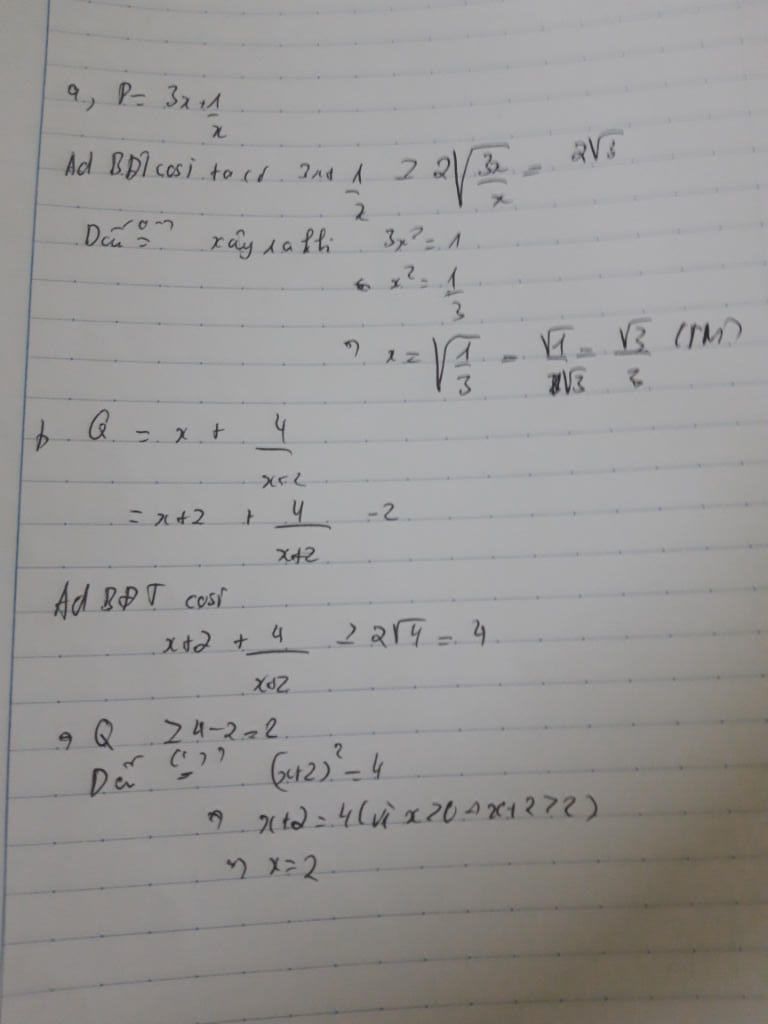 a, P = 3x + 1/x
Ad BĐT cosi ta có 3x + 1/2 ≥ 2√(3x/x) = 2√3
Dấu "=" xảy ra khi 3x² = 1
x² = 1/3
⇒ x = √(1/3) = √1/√3 = √3/3 (TM)
b Q = x + 4/(x+2)
= x+2 + 4/(x+2) - 2
Ad BĐT cosi
x+2 + 4/(x+2) ≥ 2√4 = 4
⇒ Q ≥ 4-2=2
Dấu "=" (x+2)² = 4
⇒ x+2 = 4 (vì x≥0 ⇒ x+2≥2)
⇒ x=2